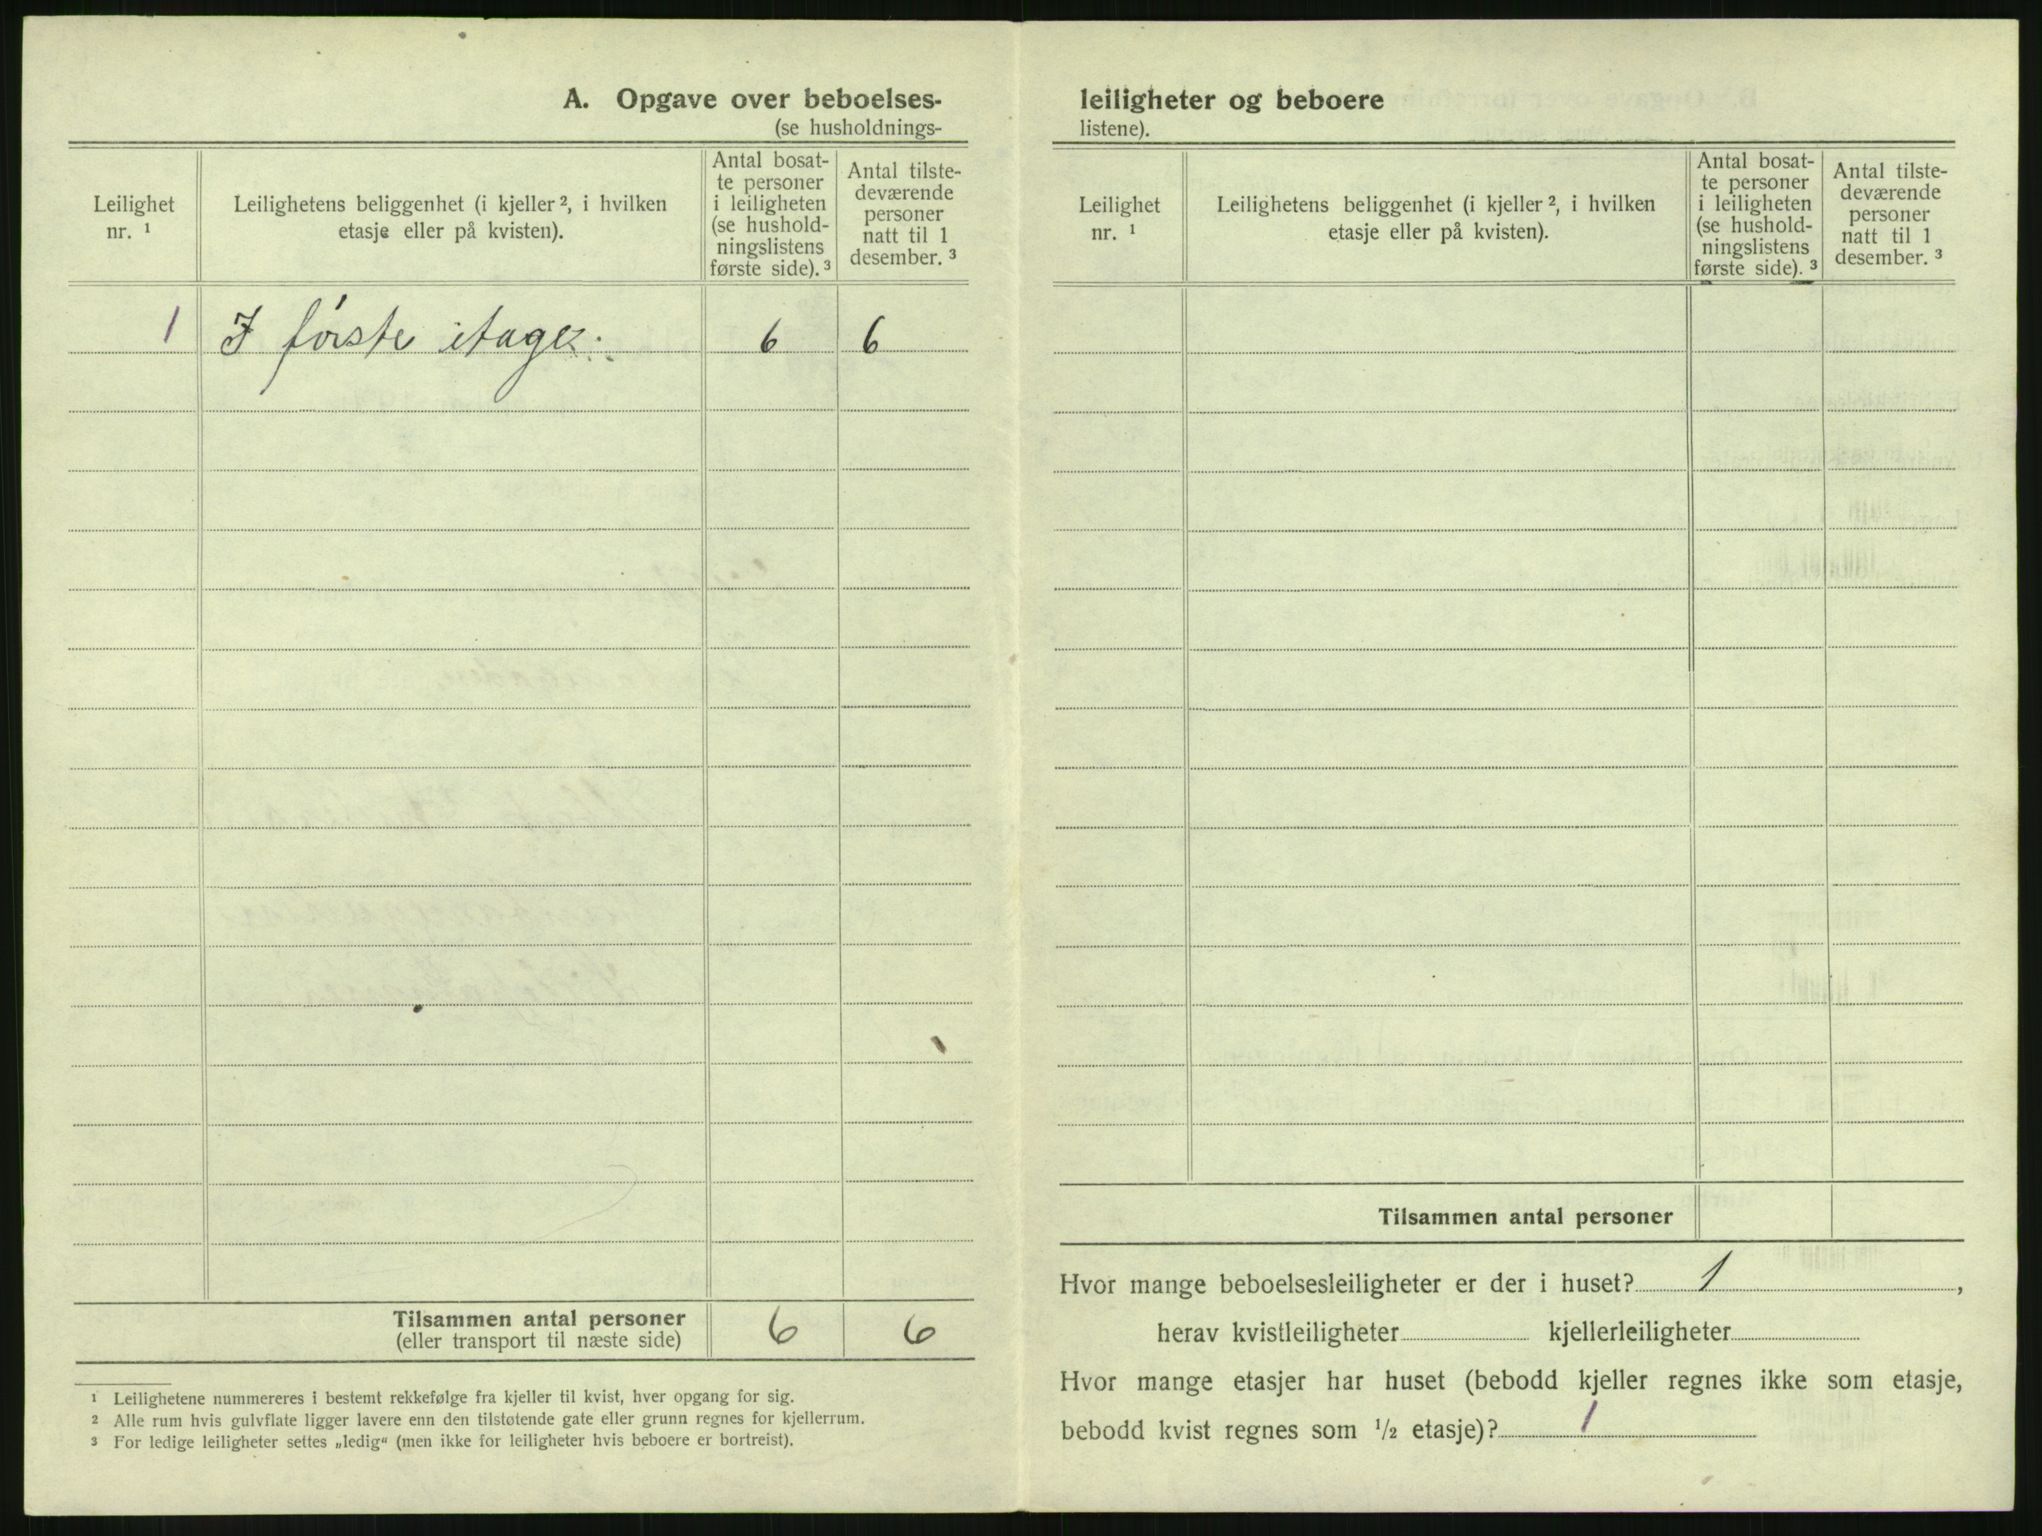 A. Opgave over beboelses-
(se husholdnings-
Leilighet
nr. ¹
Leilighetens beliggenhet (i kjeller ², i hvilken
etasje eller på kvisten).
Antal bosat-
te personer
i leiligheten
(se hushold-
ningslistens
første side). ³
Antal tilste-
deværende
personer
natt til 1
desember. ³
1 I første etage. 6 6
Tilsammen antal personer 6 6
(eller transport til næste side)
¹ Leilighetene nummereres i bestemt rekkefølge fra kjeller til kvist, hver opgang for sig.
² Alle rum hvis gulvflate ligger lavere enn den tilstøtende gate eller grunn regnes for kjellerrum.
³ For ledige leiligheter settes „ledig“ (men ikke for leiligheter hvis beboere er bortreist).
leiligheter og beboere
listene).
Leilighet
nr. ¹
Leilighetens beliggenhet (i kjeller ², i hvilken
etasje eller på kvisten).
Antal bosat-
te personer
i leiligheten
(se hushold-
ningslistens
første side). ³
Antal tilste-
deværende
personer
natt til 1
desember. ³
Tilsammen antal personer
Hvor mange beboelsesleiligheter er der i huset? 1,
herav kvistleiligheter kjellerleiligheter
Hvor mange etasjer har huset (bebodd kjeller regnes ikke som etasje,
bebodd kvist regnes som ½ etasje)? 1